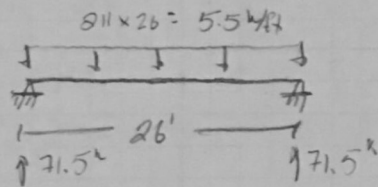 211 × 26 = 5.5 k/ft
26'
71.5ᵏ 71.5ᵏ